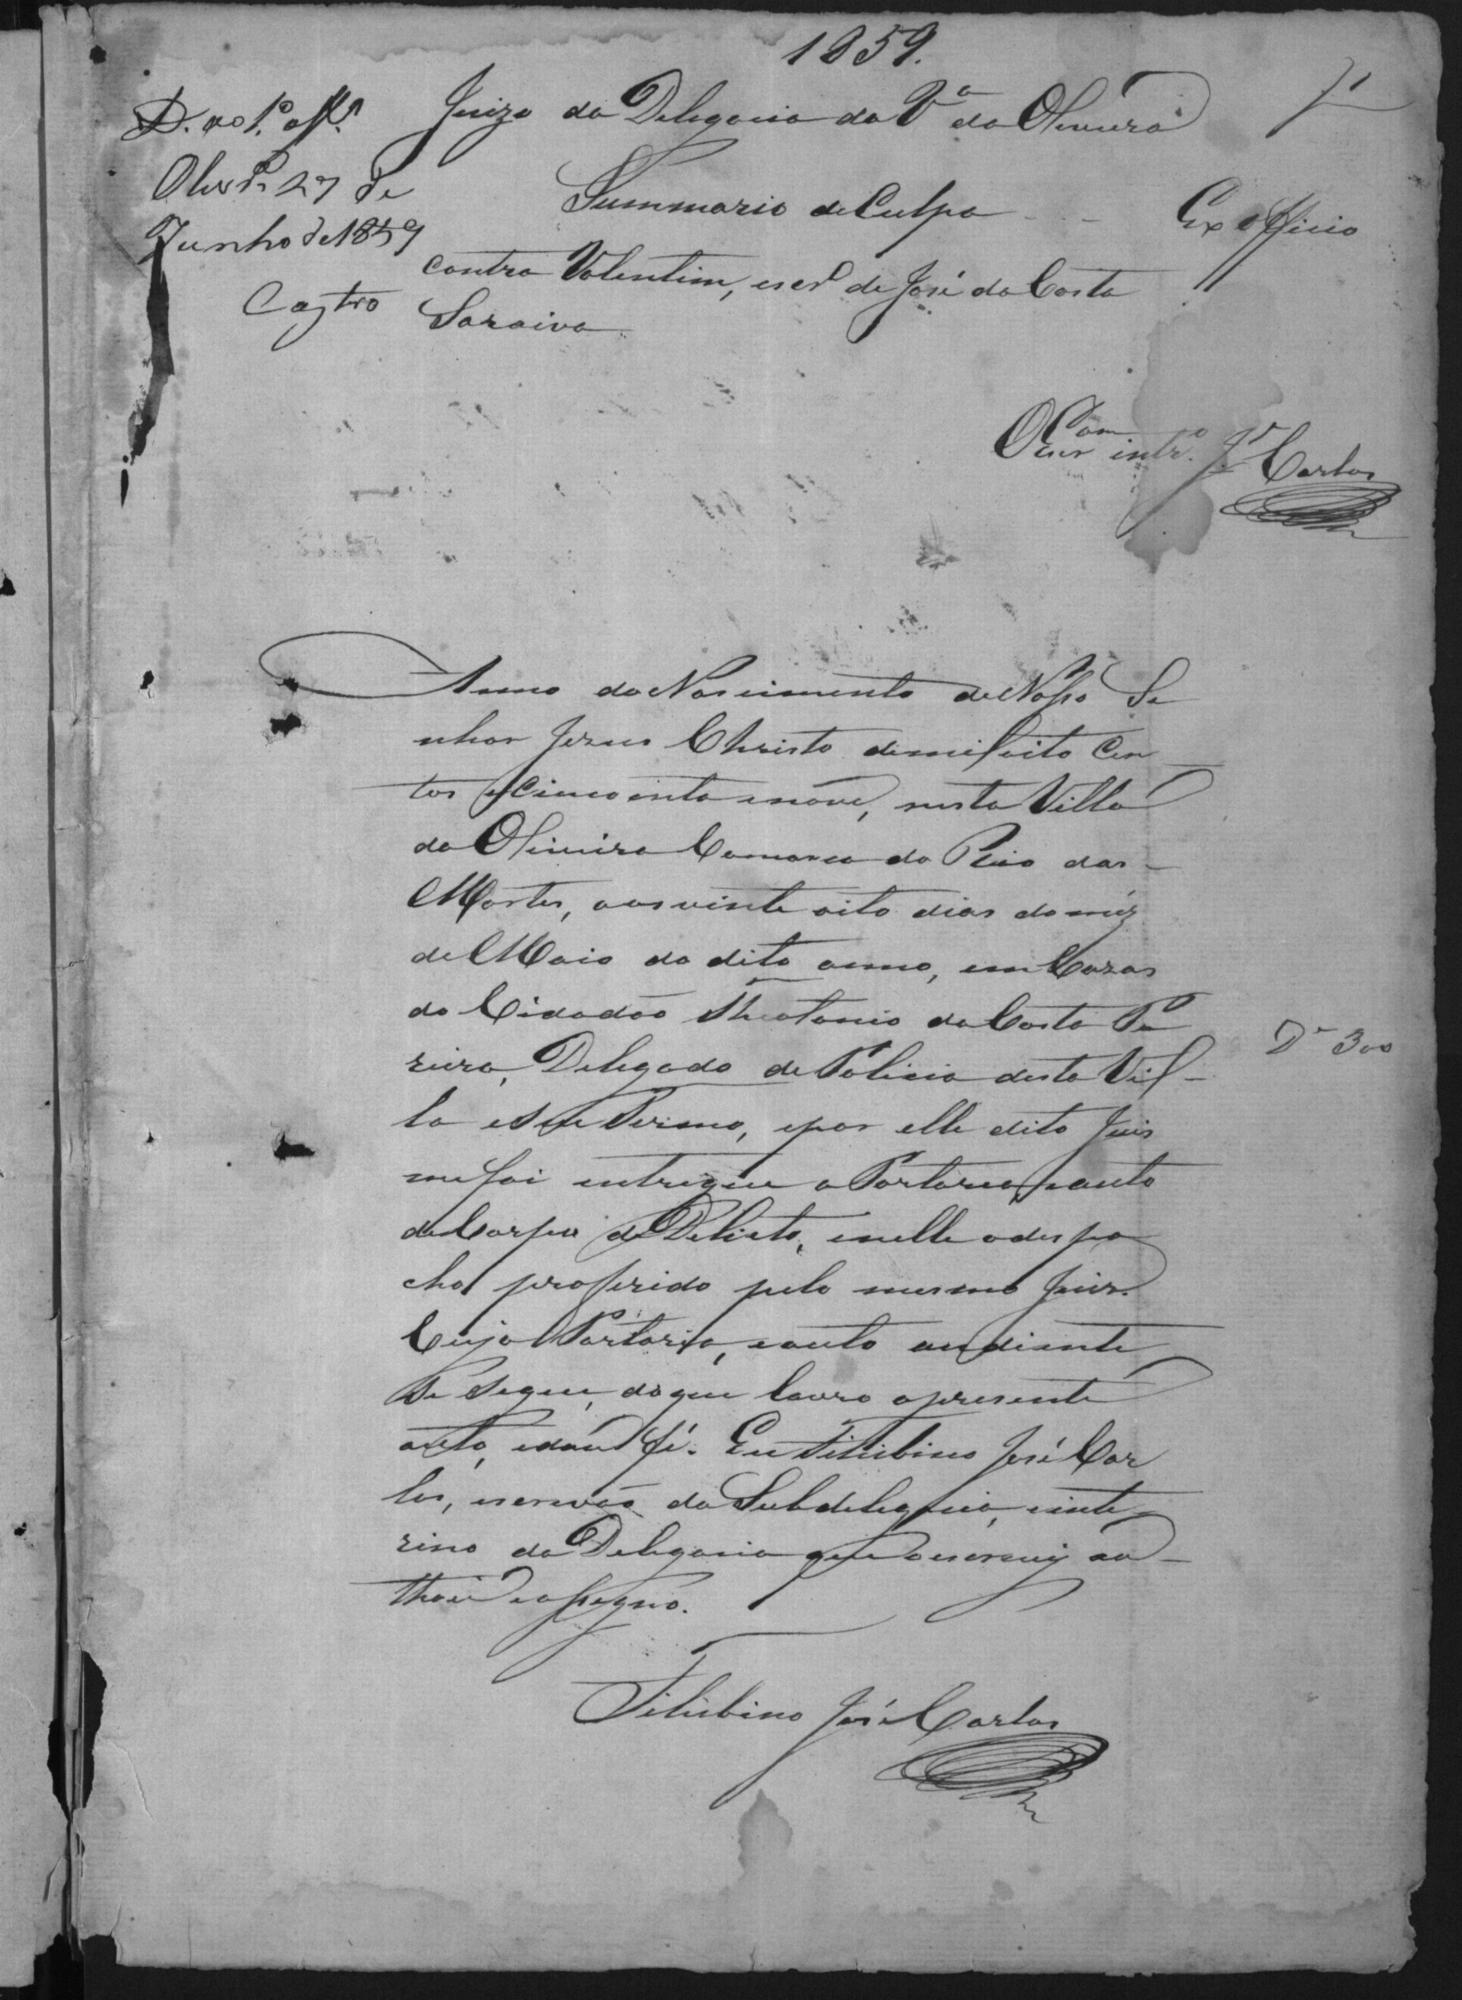 1859.
Juizo da Delegacia da Vª da Oliveira
D. ao 1º off.º
Olivrª 27 de
Junho de 1859
Castro
Summario de Culpa - - Ex officio
contra Valentim, escrº de José da Costa
Saraiva
O Escram intrº Jº Carlos
Anno do Nascimento de Nosso Se
nhor Jezus Christo de mil oito cen
tos e cincoenta e nove, nesta Villa
da Oliveira Comarca do Rio das
Mortes, aos vinte oito dias do méz
de Maio do dito anno, em Cazas
do Cidadão Theotonio da Costa Pe
reira, Delegado de Policia desta Vil-
la e seu Termo, e por elle dito Juis
me foi entregue a Portaria, e auto
de Corpo de Delicto, e nelle o despa
cho proferido pelo mesmo Juis.
Cuja Portaria, e auto ao diante
se segue, do que lavro o presente
auto, e dou fé. Eu Titibino José Car
los, escrivão da Subdelegacia, e inte
rino da Delegacia que o escrevy au
thoei e assigno.
Titibino José Carlos
Dº 300